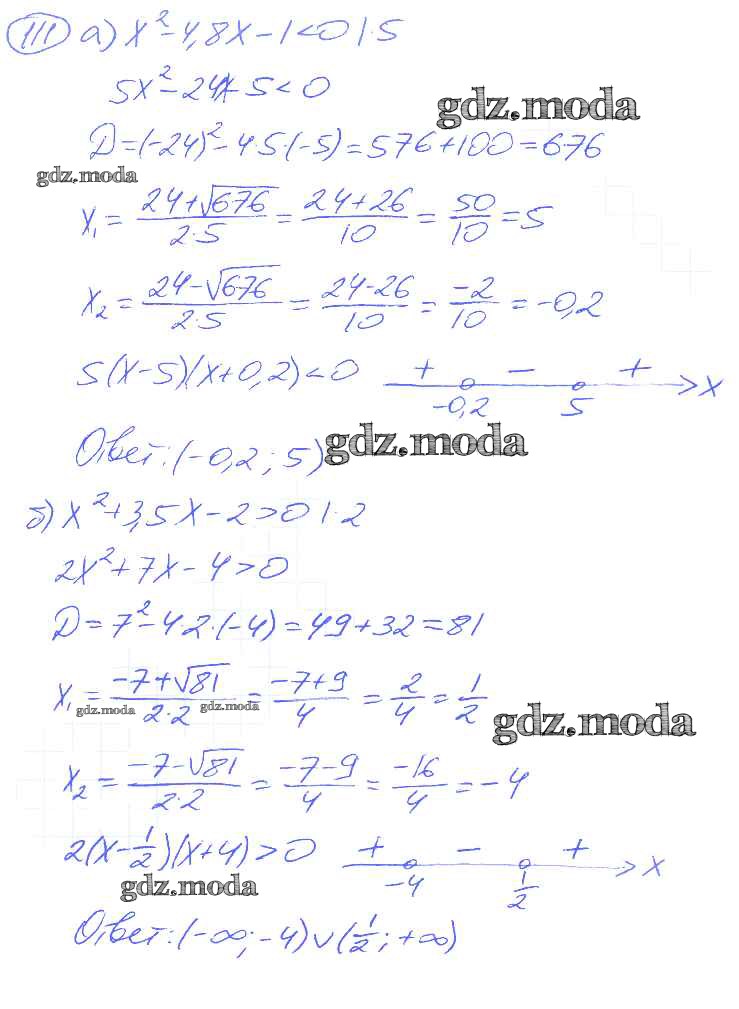 111 а) x² - 4,8x - 1 < 0 | · 5
5x² - 24x - 5 < 0
gdz.moda
D = (-24)² - 4·5(-5) = 576 + 100 = 676
gdz.moda
x₁ = (24 + √676)/(2·5) = (24 + 26)/10 = 50/10 = 5
x₂ = (24 - √676)/(2·5) = (24 - 26)/10 = -2/10 = -0,2
5(x - 5)(x + 0,2) < 0 + - + x
-0,2 5
Ответ: (-0,2; 5) gdz.moda
б) x² + 3,5x - 2 > 0 | · 2
2x² + 7x - 4 > 0
D = 7² - 4·2·(-4) = 49 + 32 = 81
x₁ = (-7 + √81)/(2·2) = (-7 + 9)/4 = 2/4 = 1/2
gdz.moda gdz.moda gdz.moda
x₂ = (-7 - √81)/(2·2) = (-7 - 9)/4 = -16/4 = -4
2(x - 1/2)(x + 4) > 0 + - + x
-4 1/2
gdz.moda
Ответ: (-∞; -4) ∪ (1/2; +∞)